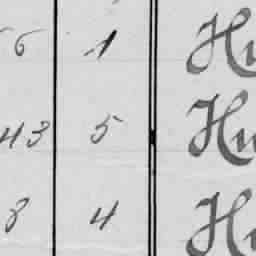 6 1 Hu
43 5 Hu
8 4 Hu